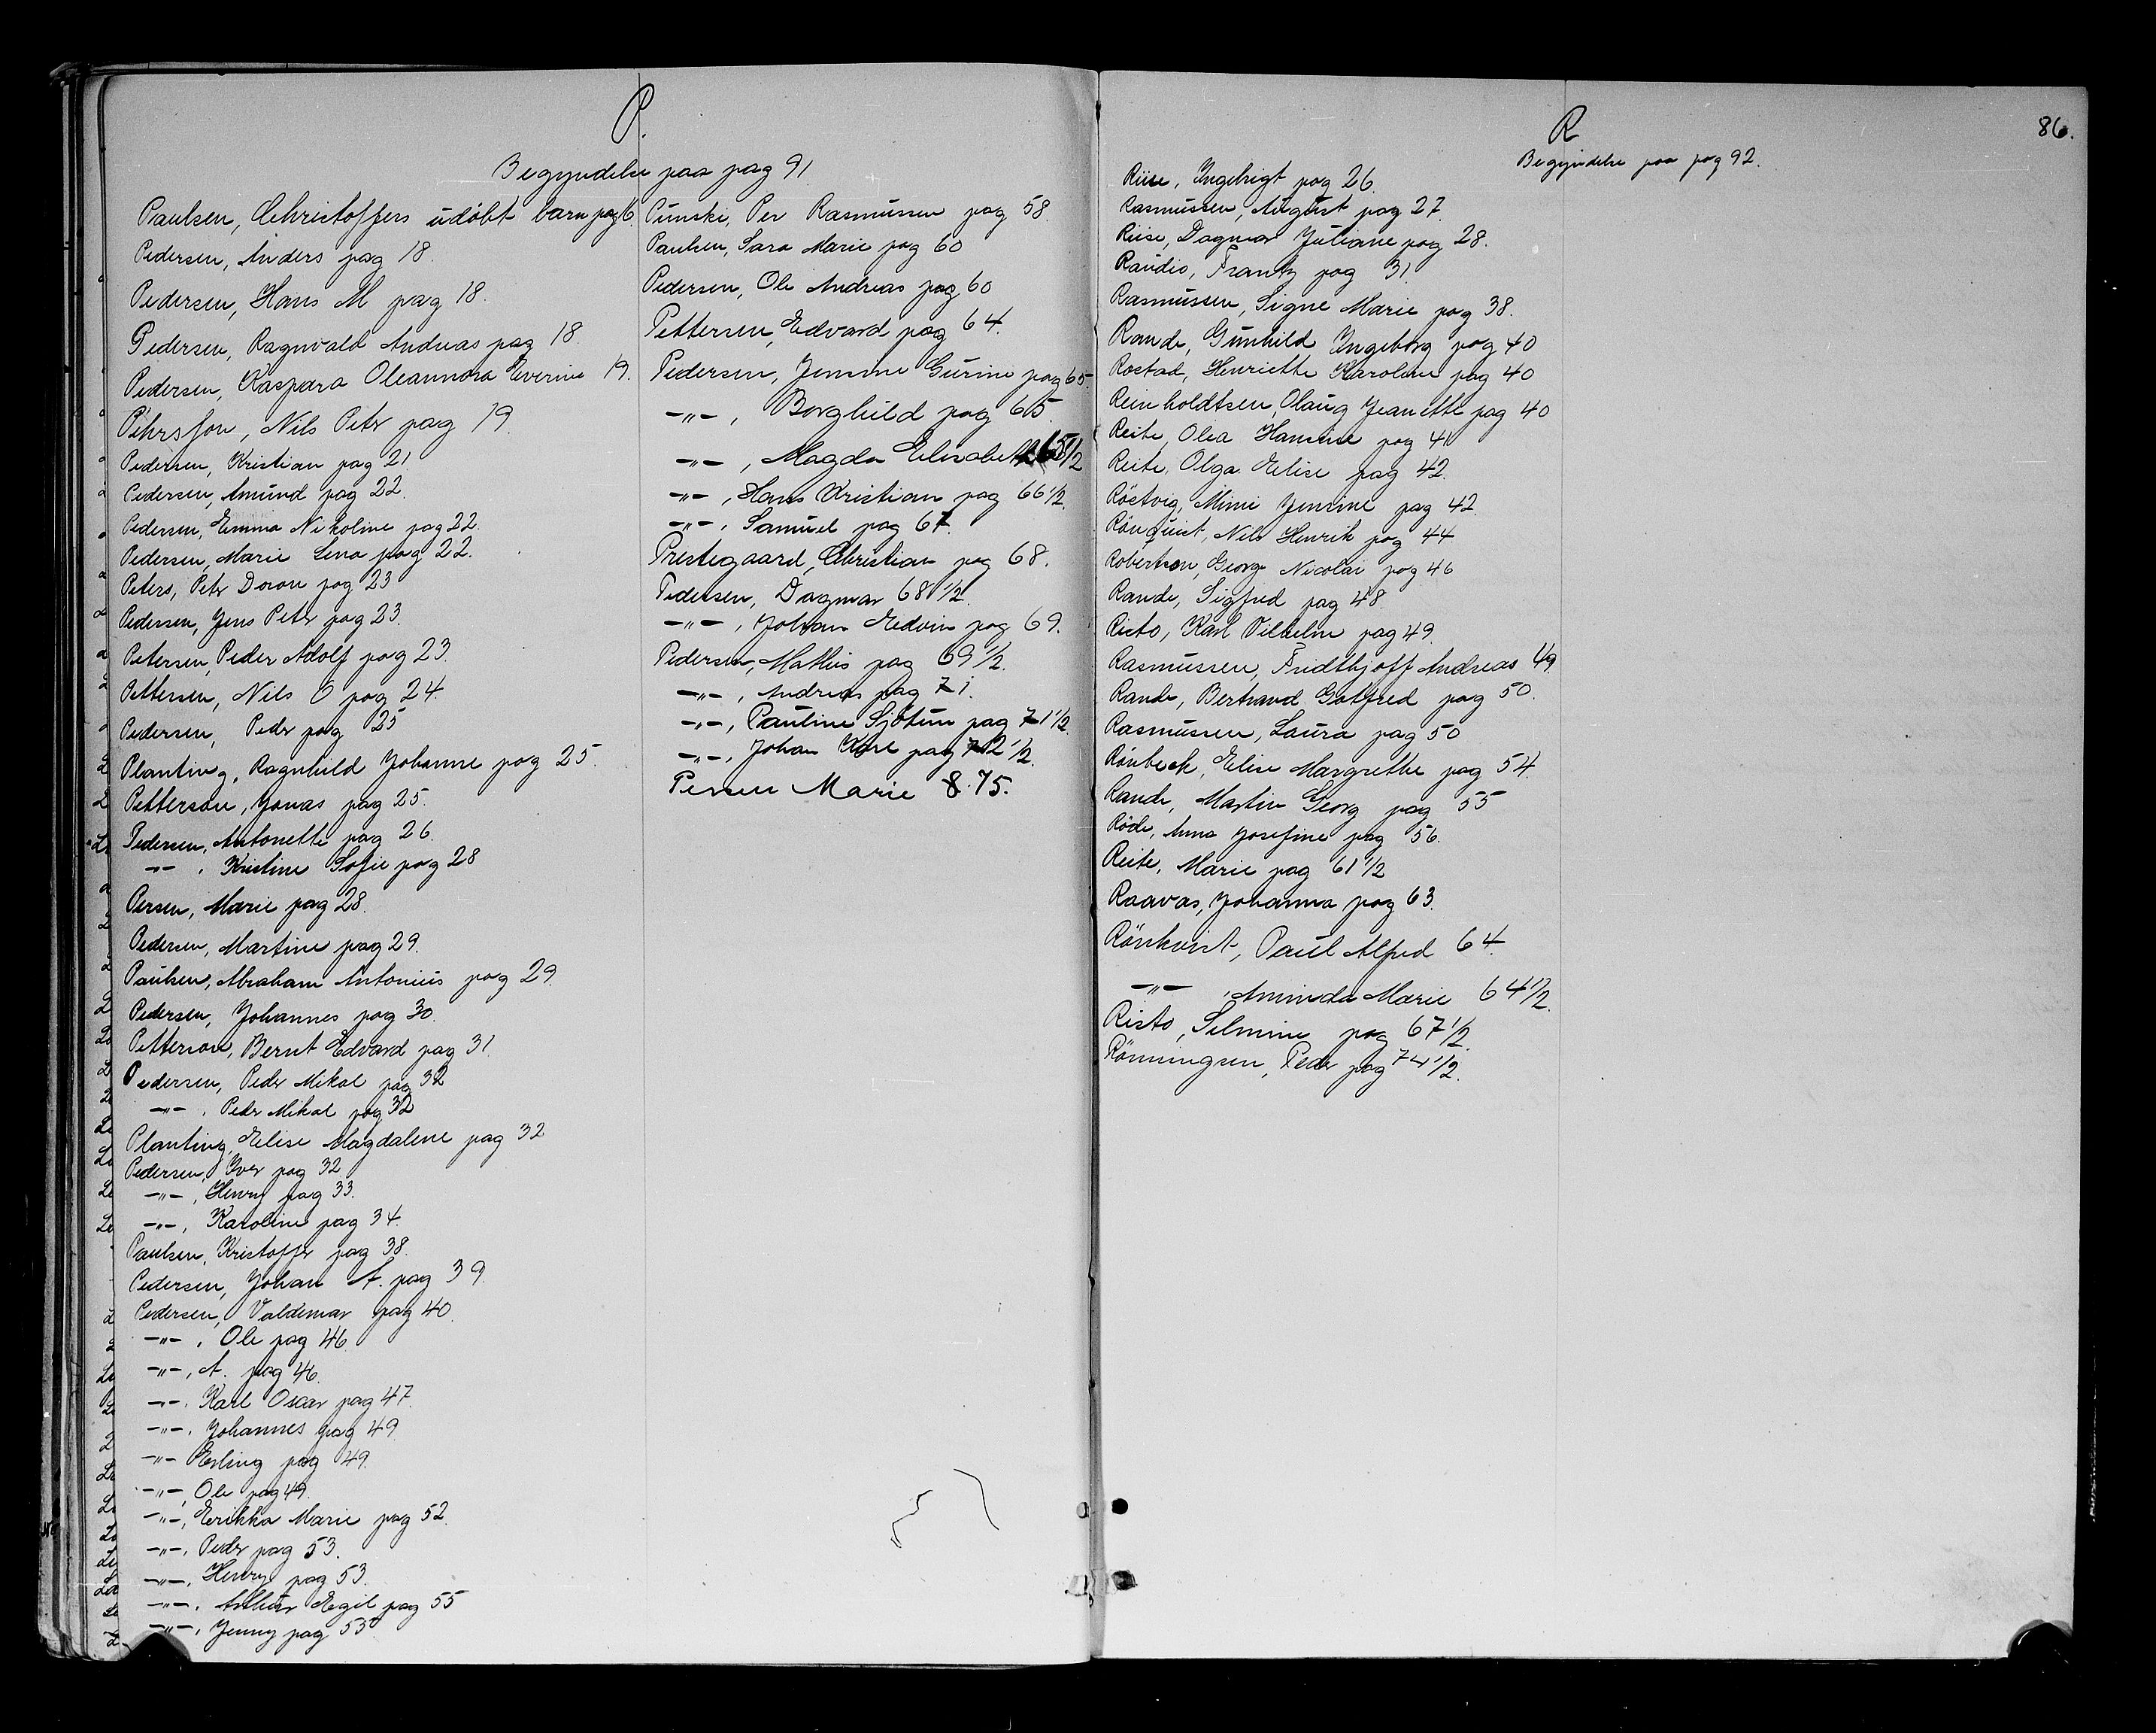 P.
Begyndelse paa pag 91
Paulsen, Christoffers udöbt barn pag 6.
Pedersen, Anders pag 18.
Pedersen, Hans M pag 18.
Pedersen, Ragnvald Andreas pag 18.
Pedersen, Kaspara Oleannora Everine 19.
Pehrsson, Nils Petr pag 19.
Pedersen, Kristian pag 21.
Pedersen, Amund pag 22.
Pedersen, Emma Nikoline pag 22.
Pedersen, Marie Lena pag 22.
Peters, Petr Doron pag 23
Pedersen, Jens Peter pag 23.
Petersen, Peder Adolf pag 23.
Pettersen, Nils O pag 24.
Pedersen, Pedr pag 25
Planting, Ragnhild Johanne pag 25.
Petterson, Jonas pag 25.
Pedersen, Antonette pag 26.
-"-, Kristine Sofie pag 28
Persen, Marie pag 28.
Pedersen, Martine pag 29.
Paulsen, Abraham Antonius pag 29.
Pedersen, Johannes pag 30.
Petterson, Bernt Edvard pag 31.
Pedersen, Pedr Mikal pag 32
-"-, Pedr Mikal pag 32
Planting, Elise Magdalene pag 32
Pedersen, Iver pag 32
-"-, Henry pag 33.
-"-, Karoline pag 34.
Paulsen, Kristoffr pag 38.
Pedersen, Johan A. pag 39.
Pedersen, Valdemar pag 40.
-"-, Ole pag 46.
-"-, A. pag 46.
-"-, Karl Oscar pag 47.
-"-, Johannes pag 49.
-"- Erling pag 49.
-"-, Ole pag 49.
-"-, Erikka Marie pag 52.
-"-, Pedr pag 53.
-"-, Henry pag 53.
-"-, Arthur Egil pag 55
-"-, Jenny pag 55
Punski, Per Rasmussen pag 58.
Paulsen, Sara Marie pag 60
Pedersen, Ole Andreas pag 60
Pettersen, Edvard pag 64.
Pedersen, Jensine Gurine pag 65.
-"-, Borghild pag 65.
-"-, Magda Elisabeth 65 1/2
-"-, Hans Kristian pag 66 1/2.
-"-, Samuel pag 67.
Prestegaard, Christian pag 68.
Pedersen, Dagmar 68 1/2.
-"-, Johan Edvin pag 69.
Pedersen, Mathis pag 69 1/2.
-"-, Andreas pag 71.
-"-, Pauline Sjötun pag 71 1/2.
-"-, Johan Karl pag 72 1/2.
Persen Marie 8.75.
R
86.
Begyndelse paa pag 92.
Riise, Ingebrigt pag 26.
Rasmussen, August pag 27.
Riise, Dagmar Juliane pag 28.
Raudio, Frantz pag 31
Rasmussen, Signe Marie pag 38.
Rande, Gunhild Ingeborg pag 40
Rostad, Henriette Karoline pag 40
Reinholdtsen, Olaug Jeanette pag 40
Reite, Olea Hansine pag 41
Reite, Olga Elise pag 42.
Röstvig, Mimi Jensine pag 42.
Rönquist, Nils Henrik pag 44
Robertson, Georg Nicolai pag 46
Rande, Sigfred pag 48.
Risto, Karl Vilhelm pag 49.
Rasmussen, Fridthjoff Andreas 49.
Rande, Bertrand Gotfred pag 50.
Rasmussen, Laura pag 50
Rönbeck, Elise Margrethe pag 54.
Rande, Martin Georg pag 55
Röde, Anna Josefine pag 56.
Reite, Marie pag 61 1/2
Raavas, Johanna pag 63.
Rönkvist, Paul Alfred 64.
-"-, Aminda Marie 64 1/2.
Risto, Selmine pag 67 1/2.
Rönningsen, Peder pag 74 1/2.